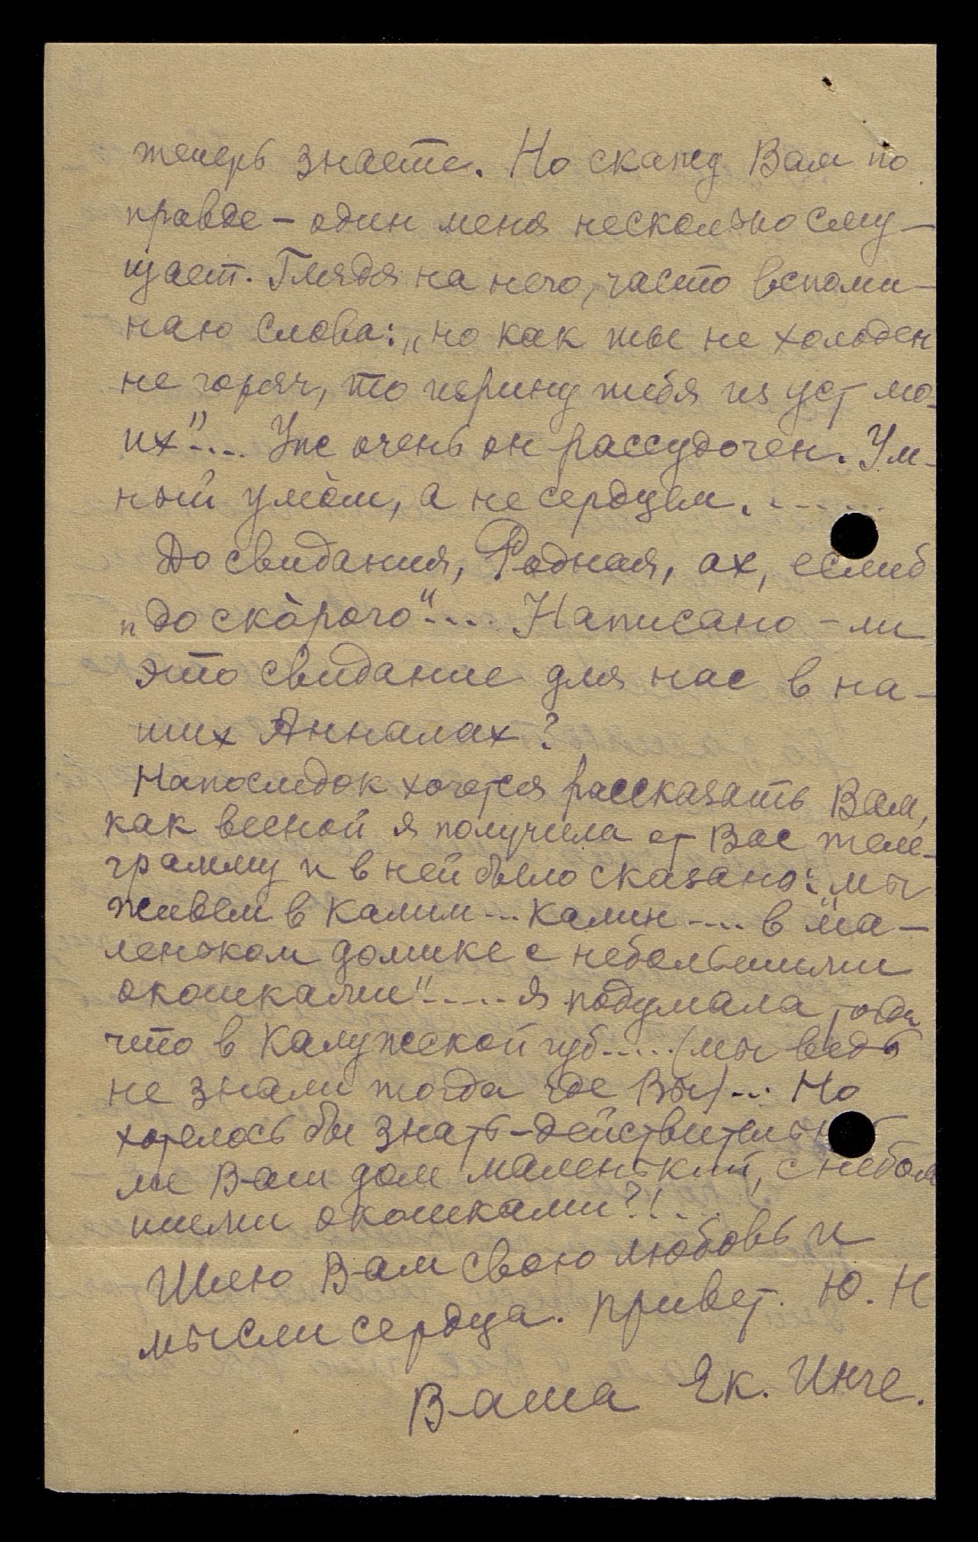 теперь знаете. Но скажу Вам по
правде – один меня несколько сму–
щает. Глядя на него, часто вспоми–
наю слова: „но как ты не холоден
не горяч, то изрину тебя из уст мо–
их".... Уж очень он рассудочен. Ум–
ный умом, а не сердцем. . – – . . .
До свидания, Родная, ах, еслиб
„до скорого".... Написано – ли
это свидание для нас в на–
ших Анналах?
Напоследок хочется рассказать Вам,
как весной я получила от Вас теле–
грамму и в ней было сказано: мы
живем в Калим... Калин.... в ма–
леньком домике с небольшими
окошками"..... Я подумала тогда
что в Калужской губ..... (мы ведь
не знали тогда где Вы)... Но
хотелось бы знать – действительно
ли Ваш дом маленький, с неболь
шими окошками?!...
Шлю Вам свою любовь и
мысли сердца. Привет. Ю. Н
Ваша Ек. Инге.